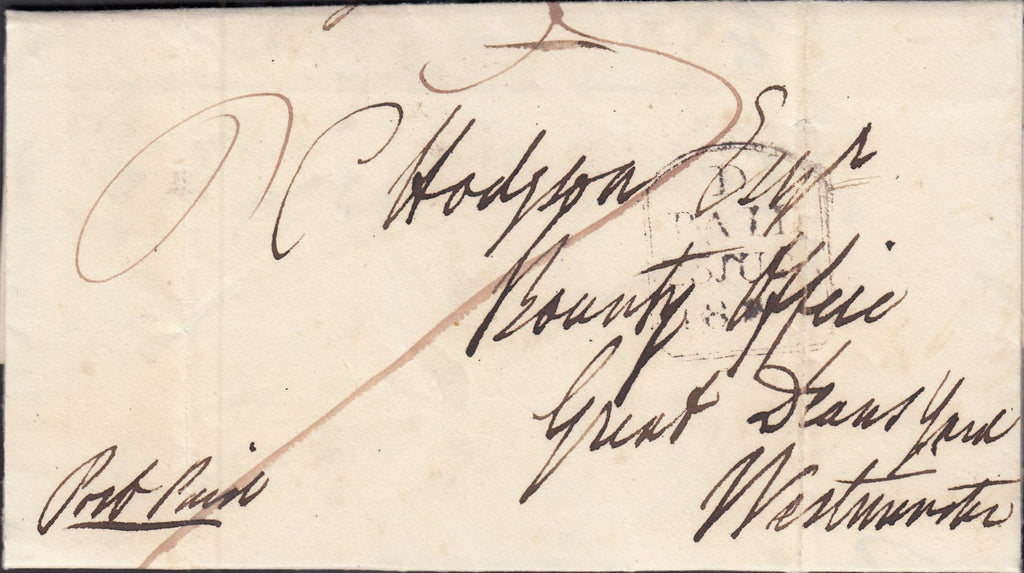 C Hodgson Esqr
Bounty Office
Great Deans Yard
Westminster
Post Paid
D
PAID
JU